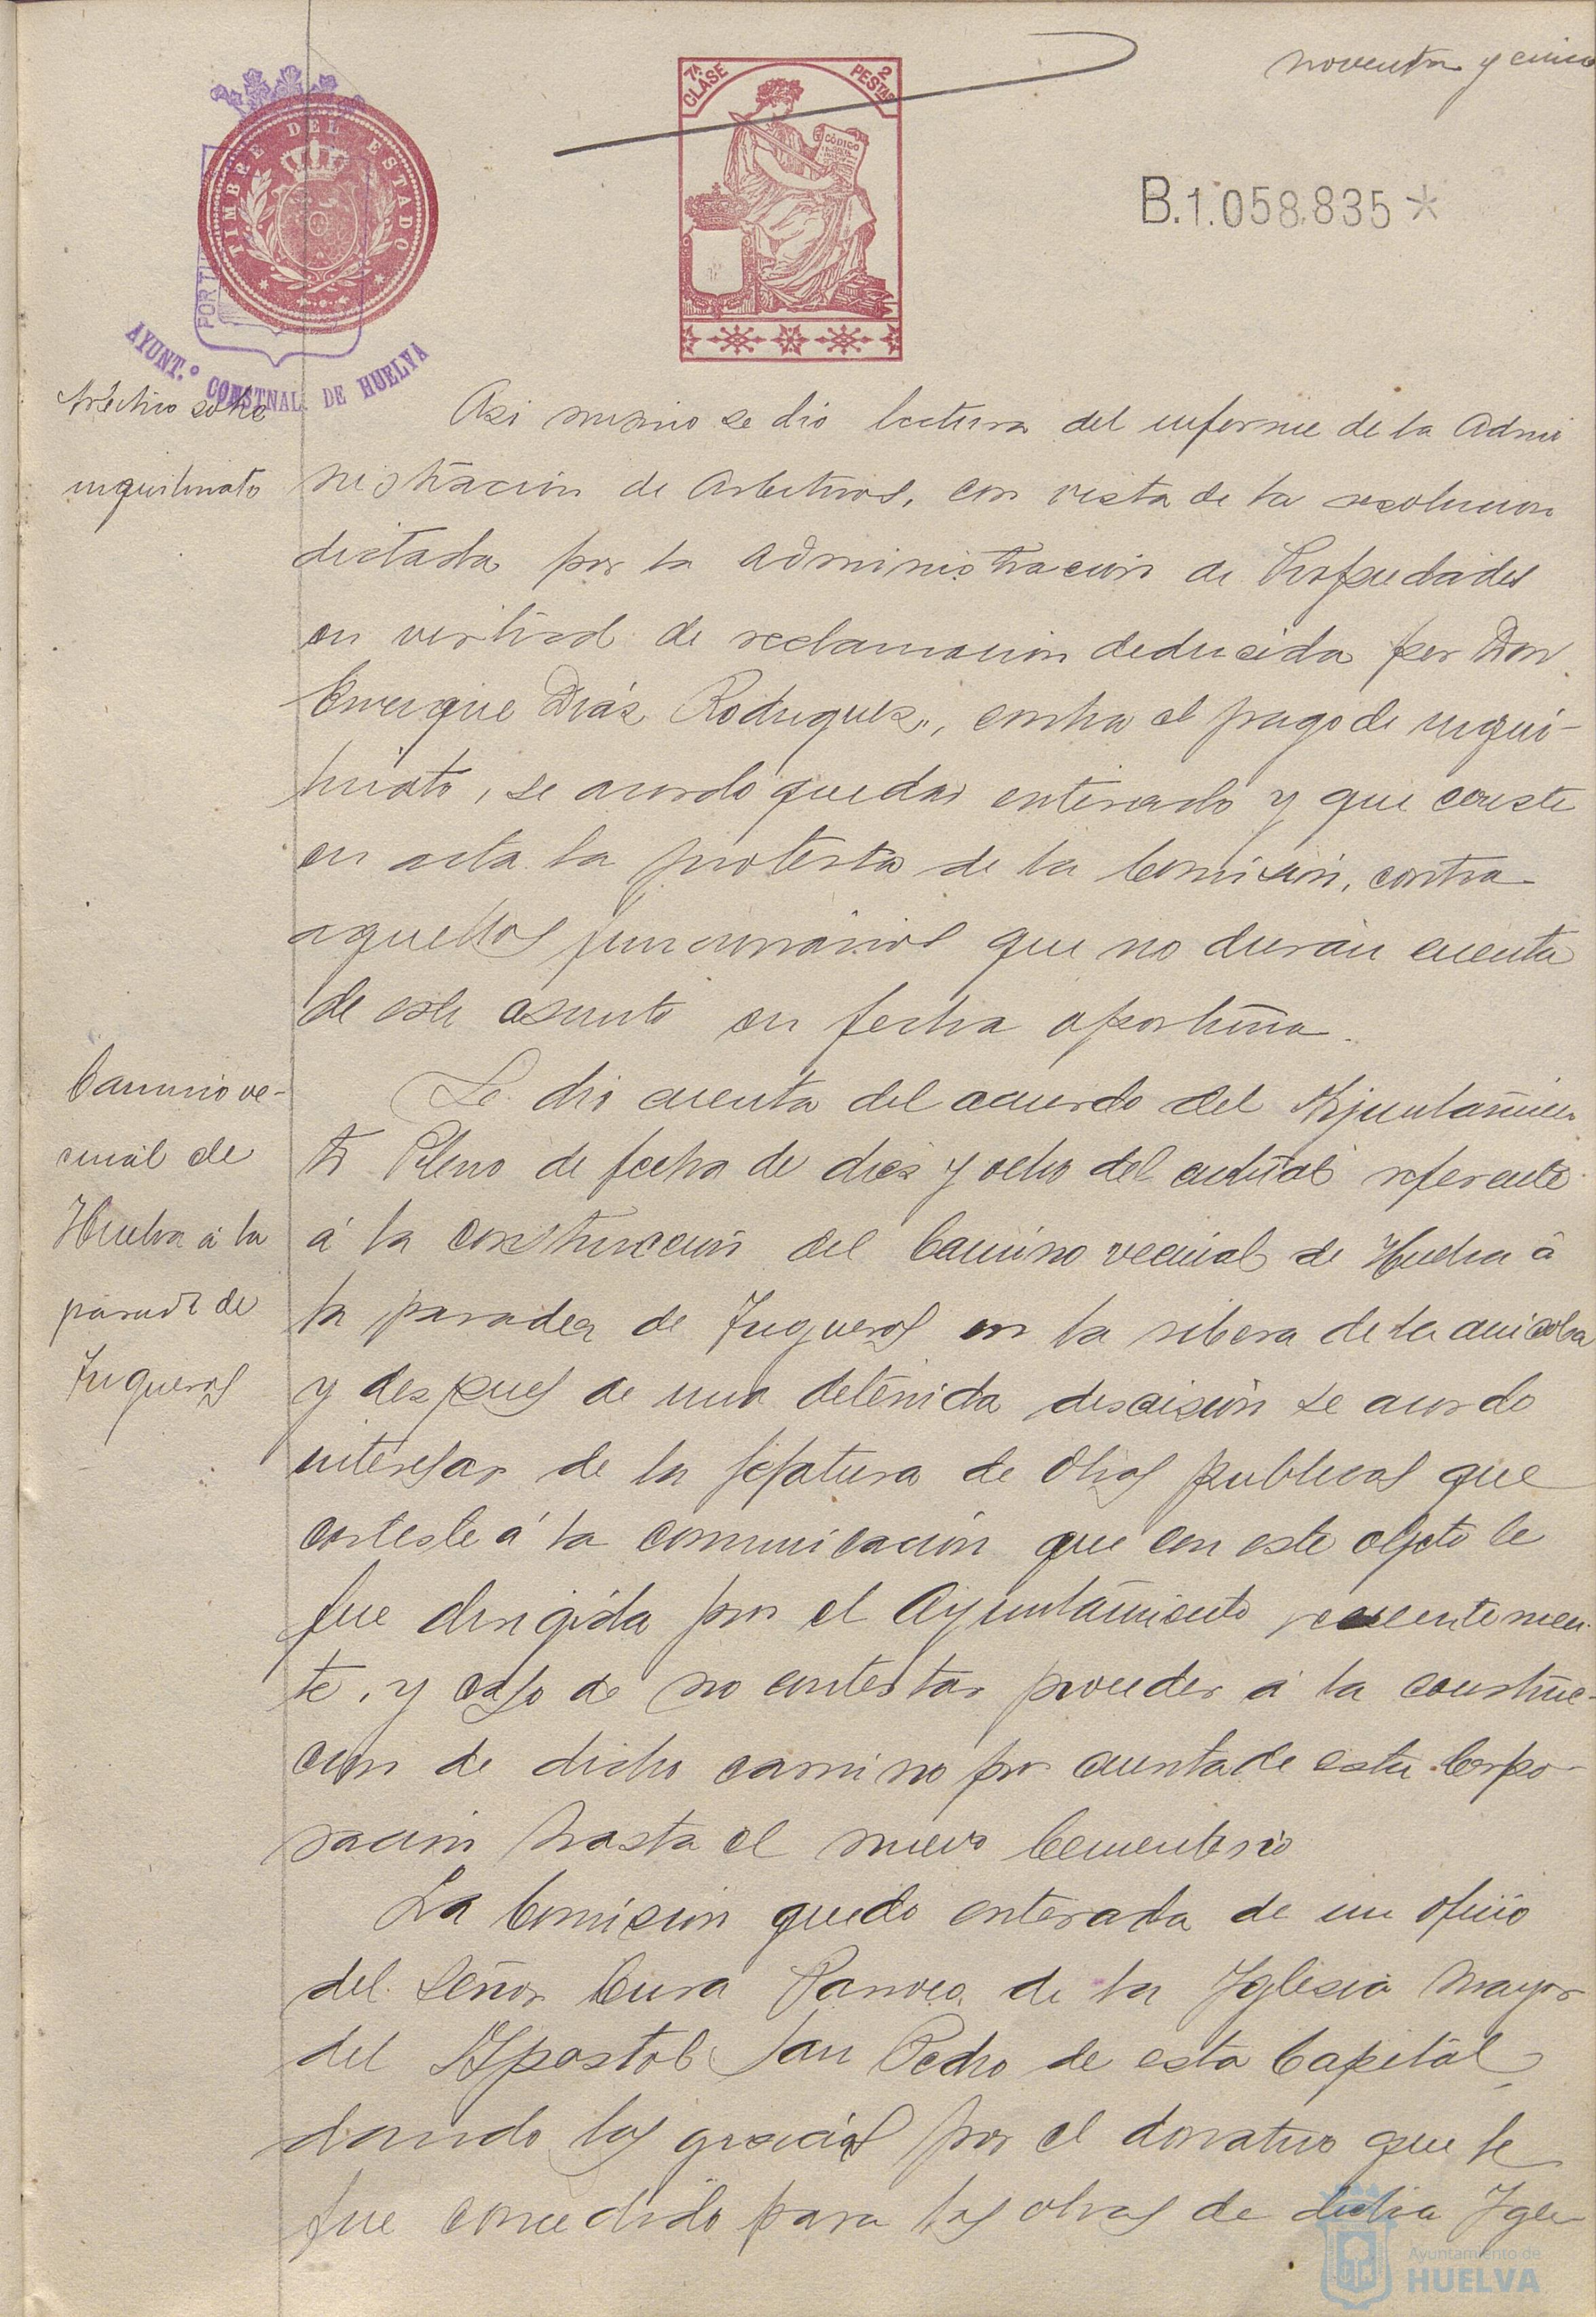 noventa y cinco
7ª CLASE
2 PESTAS
CÓDIGO
TIMBRE DEL ESTADO
B.1.058.835 *
AYUNT.º CONSTNAL. DE HUELVA
Arbitrio sobre
inquilinato
Asi mismo se dio lectura del informe de la Admi
nistracion de Arbitrios, con vista de la resolucion
dictada por la Administracion de Propiedades
en virtud de reclamacion deducida por Don
Enrique Diás Rodriguez, contra el pago de inqui-
linato, se acordo quedar enterado y que conste
en acta la protesta de la Comision, contra
aquellos funcionarios que no dieran cuenta
de este asunto en fecha oportuna.
Camino ve-
cinal de
Huelva á la
parada de
Jugueros
Se dio cuenta del acuerdo del Ayuntamien
to Pleno de fecha de dies y ocho del actual referente
á la construccion del Camino vecinal de Huelva á
la parada de Jugueros en la ribera de la anicoba
y despues de una detenida discusion se acordo
interesar de la Jefatura de Obras publicas que
conteste á la comunicacion que con este objeto le
fue dirigida por el Ayuntamiento recientemen-
te, y caso de no contestar proceder á la construc-
cion de dicho camino por cuenta de esta Corpo-
racion hasta el nuevo Cementerio
La Comision quedo enterada de un oficio
del Señor Cura Parroco de la Iglesia Mayor
del Apostol San Pedro de esta Capital
dando las gracias por el donativo que le
fue concedido para las obras de dicha Igle
Ayuntamiento de
HUELVA